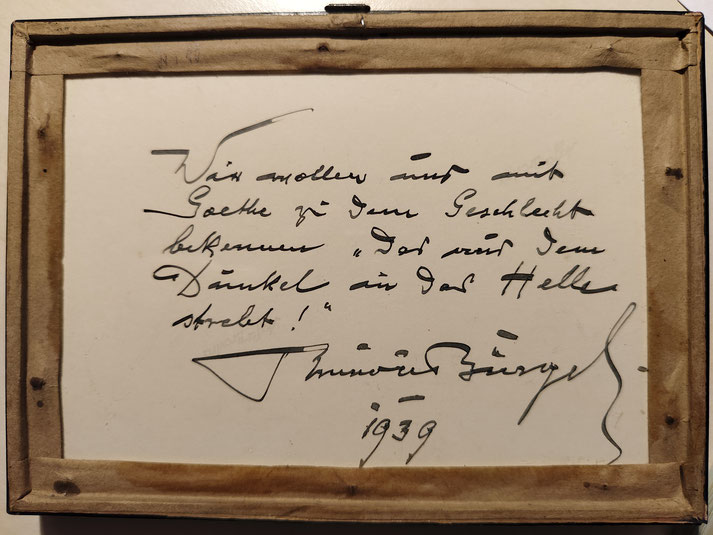 Wir wollen uns mit
Goethe zu dem Geschlecht
bekennen „Das aus dem
Dunkel in das Helle
strebt!“
Bürgel
1939